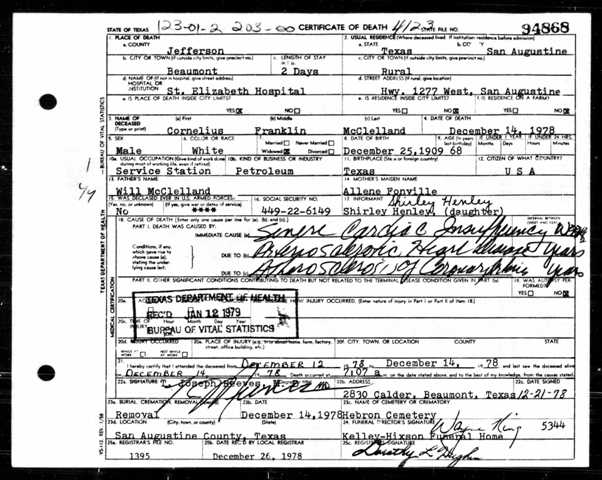 STATE OF TEXAS 123-01-2 203-00 CERTIFICATE OF DEATH 4123 STATE FILE NO. 94868
1. PLACE OF DEATH 2. USUAL RESIDENCE (Where deceased lived. If institution residence before admission)
a. COUNTY a. STATE
Jefferson Texas San Augustine
b. CITY OR TOWN (If outside city limits, give precinct no.) c. LENGTH OF STAY b. CITY OR TOWN (If outside city limits, give precinct no.)
Beaumont 2 Days Rural
d. NAME OF (If not in hospital, give street address) d. STREET ADDRESS (If rural, give location)
HOSPITAL OR
INSTITUTION St. Elizabeth Hospital Hwy. 1277 West, San Augustine
e. IS PLACE OF DEATH INSIDE CITY LIMITS? e. IS RESIDENCE INSIDE CITY LIMITS? f. IS RESIDENCE ON A FARM?
YES NO YES NO YES NO
3. NAME OF DECEASED (a) First (b) Middle (c) Last 4. DATE OF DEATH
(Type or print) Cornelius Franklin McClelland December 14, 1978
5. SEX 6. COLOR OR RACE 7. Married Never Married 8. DATE OF BIRTH
Male White Widowed Divorced December 25, 1909 68
10a. USUAL OCCUPATION 10b. KIND OF BUSINESS OR INDUSTRY 11. BIRTHPLACE (State or foreign country) 12. CITIZEN OF WHAT COUNTRY?
Service Station Petroleum Texas U S A
13. FATHER'S NAME 14. MOTHER'S MAIDEN NAME
Will McClelland Allene Fonville
15. WAS DECEASED EVER IN U.S. ARMED FORCES? 16. SOCIAL SECURITY NO. 17. INFORMANT Shirley Henley
No **** 449-22-6149 Shirley Henley (daughter)
18. CAUSE OF DEATH (Enter only one cause per line for (a), (b), and (c).)
PART I. DEATH WAS CAUSED BY:
IMMEDIATE CAUSE (a) Severe Cardiac Insufficiency
DUE TO (b) Heart Disease Years
DUE TO (c) of Coronary years
PART II. OTHER SIGNIFICANT CONDITIONS CONTRIBUTING TO DEATH BUT NOT RELATED TO THE TERMINAL DISEASE CONDITION GIVEN IN PART I (a)
YES NO
TEXAS DEPARTMENT OF HEALTH
REC'D JAN 12 1979
BUREAU OF VITAL STATISTICS
20d. INJURY OCCURRED 20f. CITY, TOWN, OR LOCATION COUNTY STATE
21. I hereby certify that I attended the deceased from DECEMBER 12 78 December 14, 78
DECEMBER 14 78 Death occurred at 7:07 a m. on the date stated above, and to the best of my knowledge, from the causes stated.
22a. SIGNATURE Joseph Reeves, M. D. 22b. ADDRESS 22c. DATE SIGNED
2830 Calder, Beaumont, Texas 12-21-78
23a. BURIAL, CREMATION, REMOVAL 23b. DATE 23c. NAME OF CEMETERY OR CREMATORY
Removal December 14, 1978 Hebron Cemetery
23d. LOCATION (City, town, or county) (State) 24. FUNERAL DIRECTOR'S SIGNATURE Wayne King 5344
San Augustine County, Texas Kelley-Hixson Funeral Home
25a. REGISTRAR'S FILE NO. 25b. DATE REC'D BY LOCAL REGISTRAR 25c. REGISTRAR'S SIGNATURE
1395 December 26, 1978 Dorothy L.
TEXAS DEPARTMENT OF HEALTH
BUREAU OF VITAL STATISTICS
MEDICAL CERTIFICATION